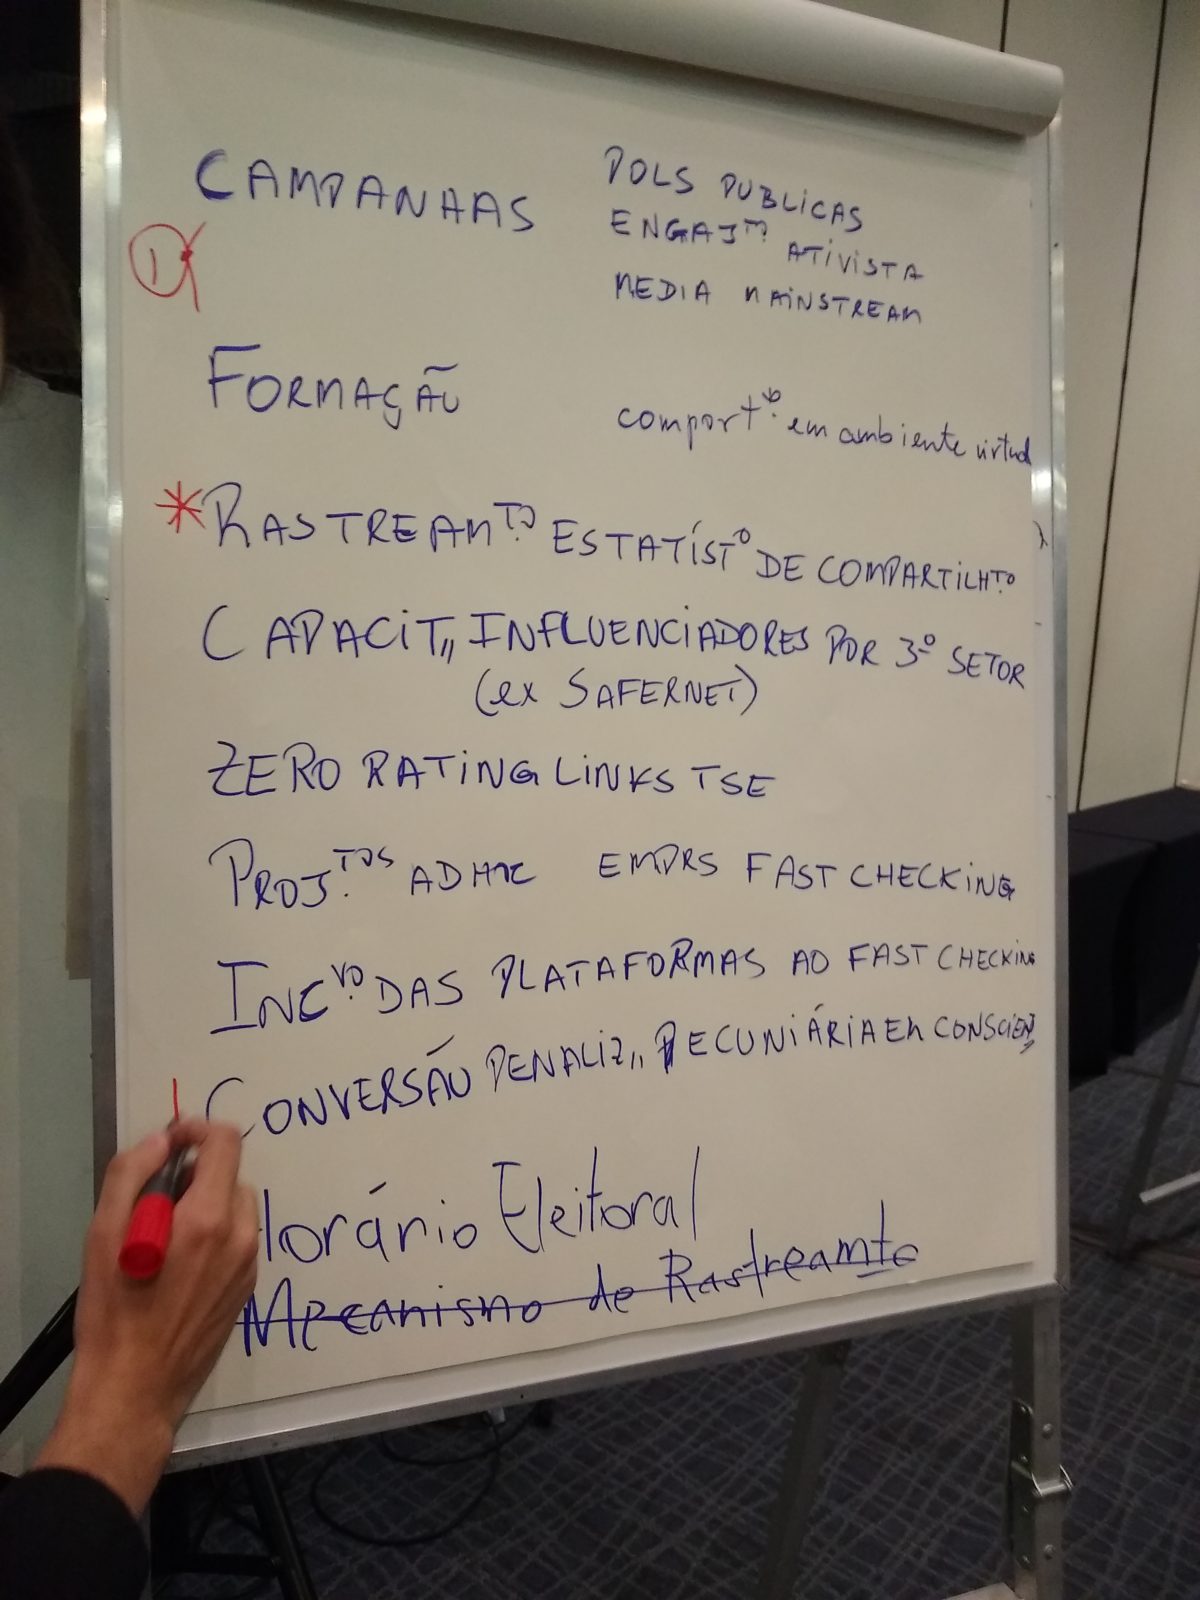 CAMPANHAS
POLS PUBLICAS
ENGAJTO ATIVISTA
MEDIA MAINSTREAM
1
FORMAÇÃO
comportto em ambiente virtual
* RASTREAMTO ESTATÍSTO DE COMPARTILHTO
CAPACIT,, INFLUENCIADORES POR 3º SETOR
(ex SAFERNET)
ZERO RATING LINKS TSE
PROJTOS AD HOC EMPRS FAST CHECKING
INCVO DAS PLATAFORMAS AO FAST CHECKING
CONVERSÃO PENALIZ,, PECUNIÁRIA EM CONSCIEN,,
Horário Eleitoral
Mecanismo de Rastreamto